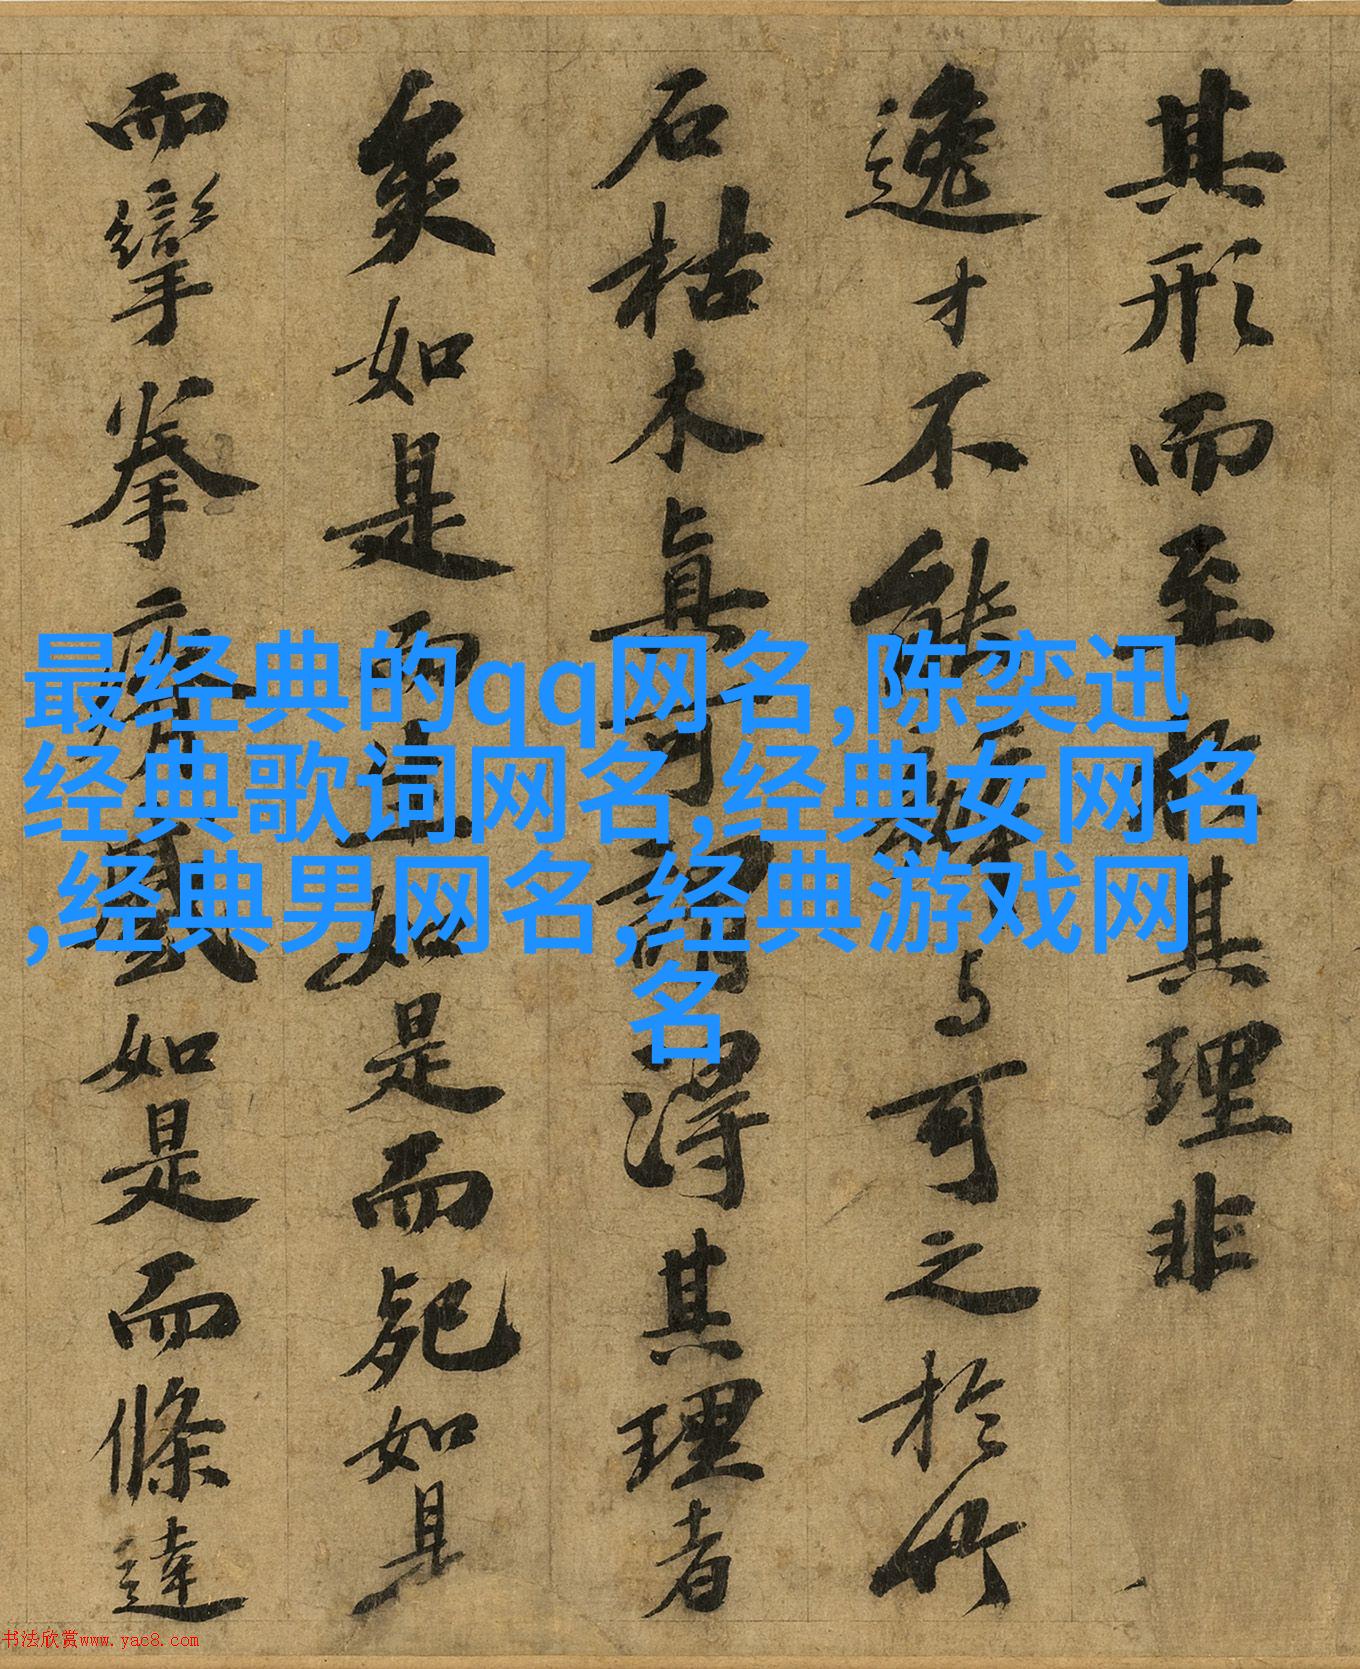 其形而至於其理非
逸才不能辨与可之於竹
石枯木眞可謂得其理者
矣如是而生如是而死如是
而攣拳瘠蹙如是而條達
最经典的qq网名,陈奕迅
经典歌词网名,经典女网名
,经典男网名,经典游戏网
名
书法欣赏www.yac8.com